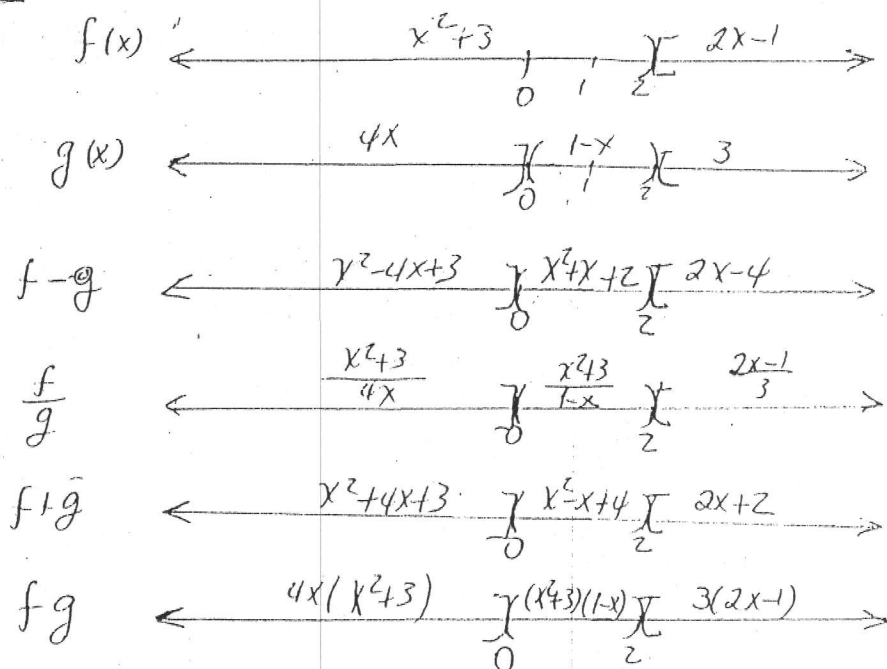 f(x) x²+3 2x-1
0 1 2
g(x) 4x 1-x 3
0 1 2
f-g x²-4x+3 x²+x+2 2x-4
0 2
f/g (x²+3)/(4x) (x²+3)/(1-x) (2x-1)/3
0 2
f+g x²+4x+3 x²-x+4 2x+2
0 2
fg 4x(x²+3) (x²+3)(1-x) 3(2x-1)
0 2